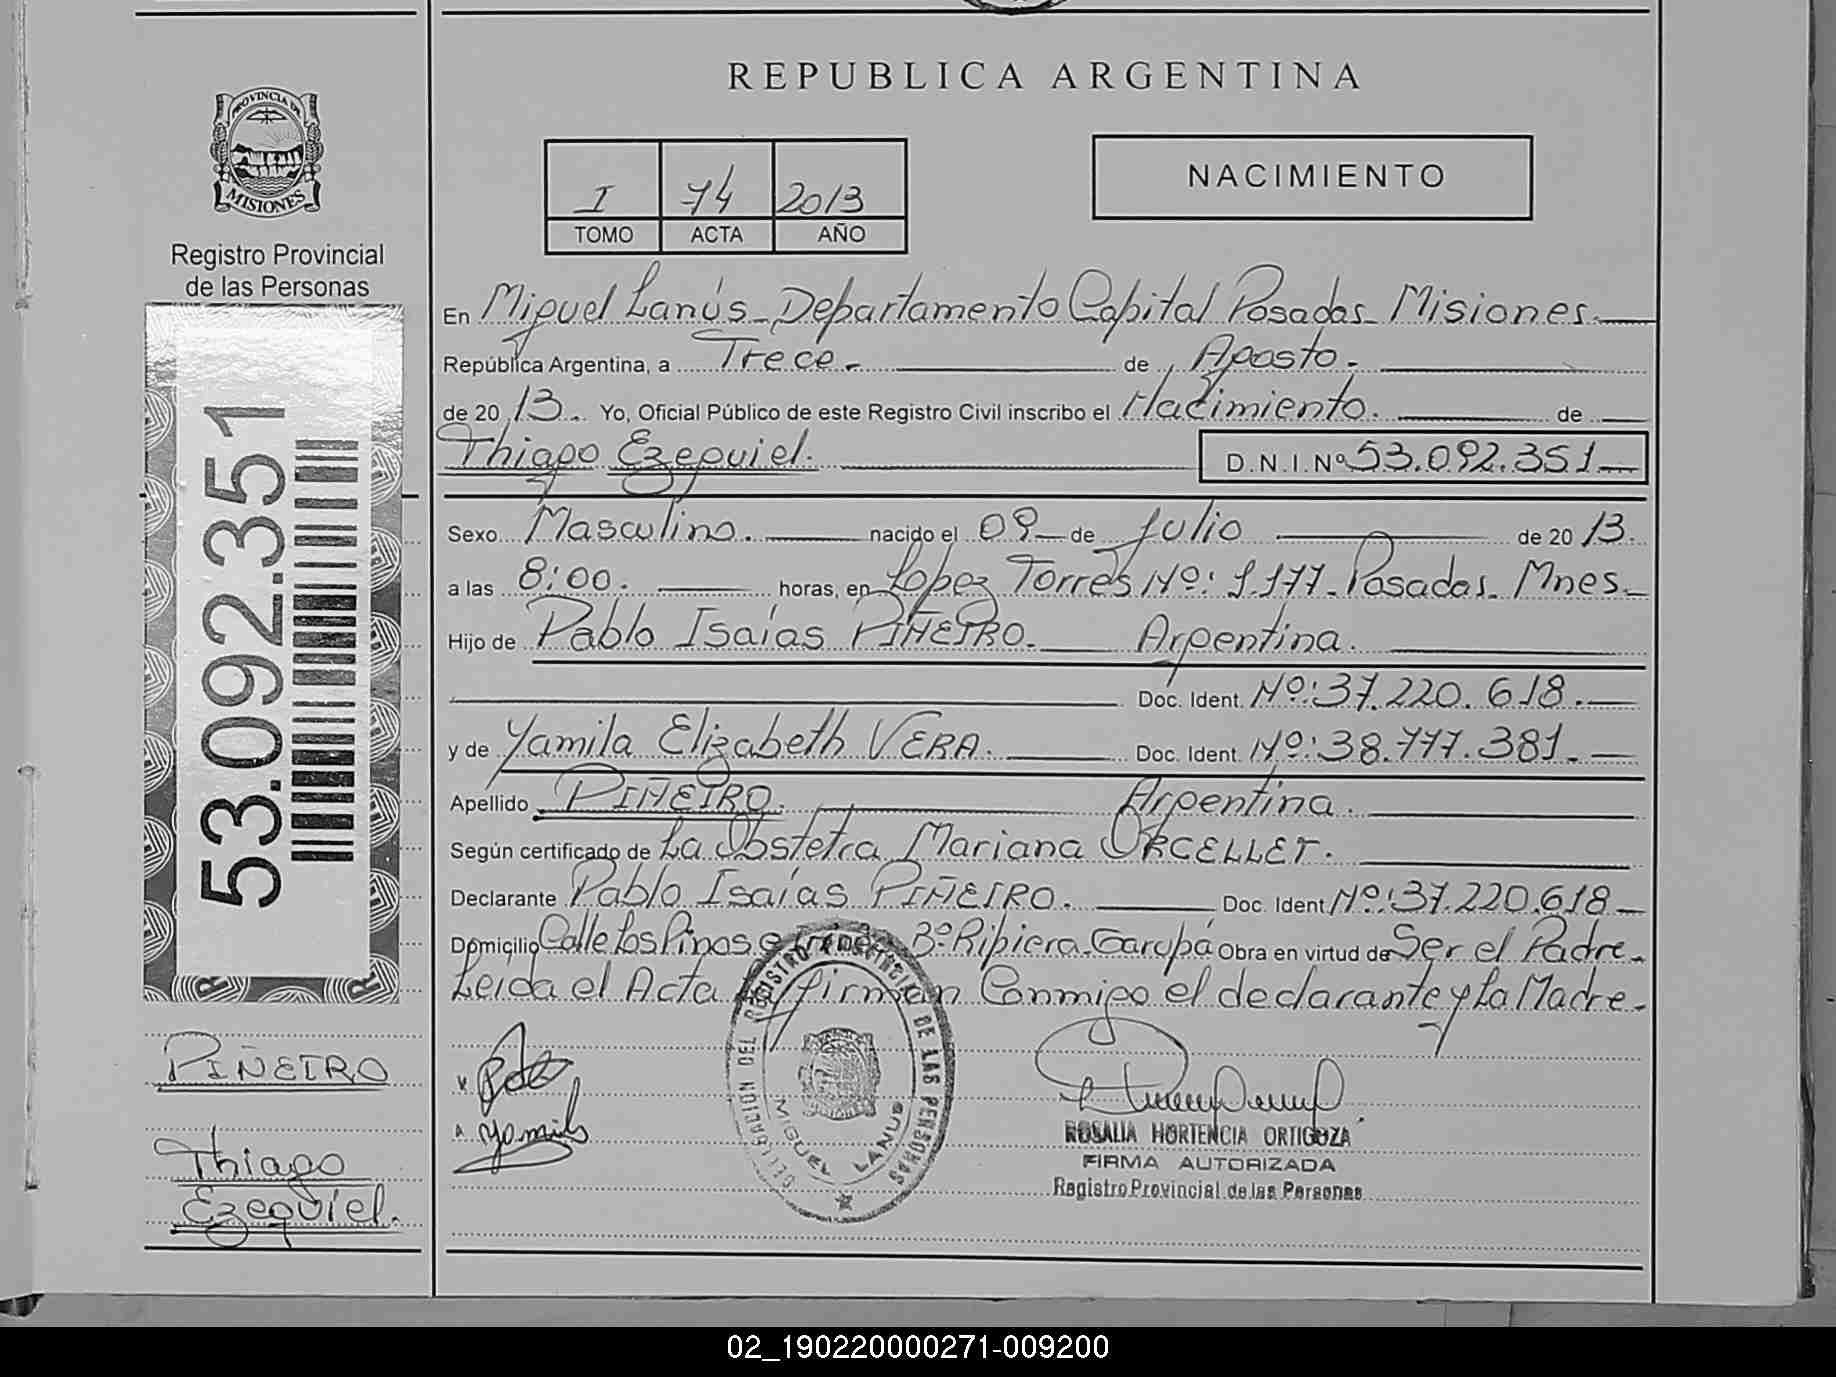 REPUBLICA ARGENTINA
PROVINCIA DE
MISIONES
Registro Provincial
de las Personas
53.092.351
I 74 2013
TOMO ACTA AÑO
NACIMIENTO
En Miguel Lanús - Departamento Capital Posadas - Misiones.
República Argentina, a Trece. de Agosto.
de 2013. Yo, Oficial Público de este Registro Civil inscribo el Nacimiento. de
Thiago Ezequiel. D.N.I.Nº 53.092.351
Sexo Masculino. nacido el 09 de Julio de 2013.
a las 8:00. horas, en Lopez Torres Nº: 1.177 - Posadas - Mnes.
Hijo de Pablo Isaías PIÑEIRO. Argentina.
Doc. Ident. Nº: 37.220.618.
y de Yamila Elizabeth VERA. Doc. Ident. Nº: 38.777.381.
Apellido PIÑEIRO. Argentina.
Según certificado de La Obstetra Mariana ORCELLET.
Declarante Pablo Isaías PIÑEIRO. Doc. Ident. Nº: 37.220.618
Domicilio Calle Los Pinos e 3º Ribiera - Garupá Obra en virtud de Ser el Padre.
Leida el Acta firman Conmigo el declarante y La Madre.
PIÑEIRO
Thiago
Ezequiel.
Yamila
DELEGACION DEL REGISTRO PROVINCIAL DE LAS PERSONAS
MIGUEL LANUS
ROSALIA HORTENCIA ORTIGOZA
FIRMA AUTORIZADA
Registro Provincial de las Personas
02_190220000271-009200